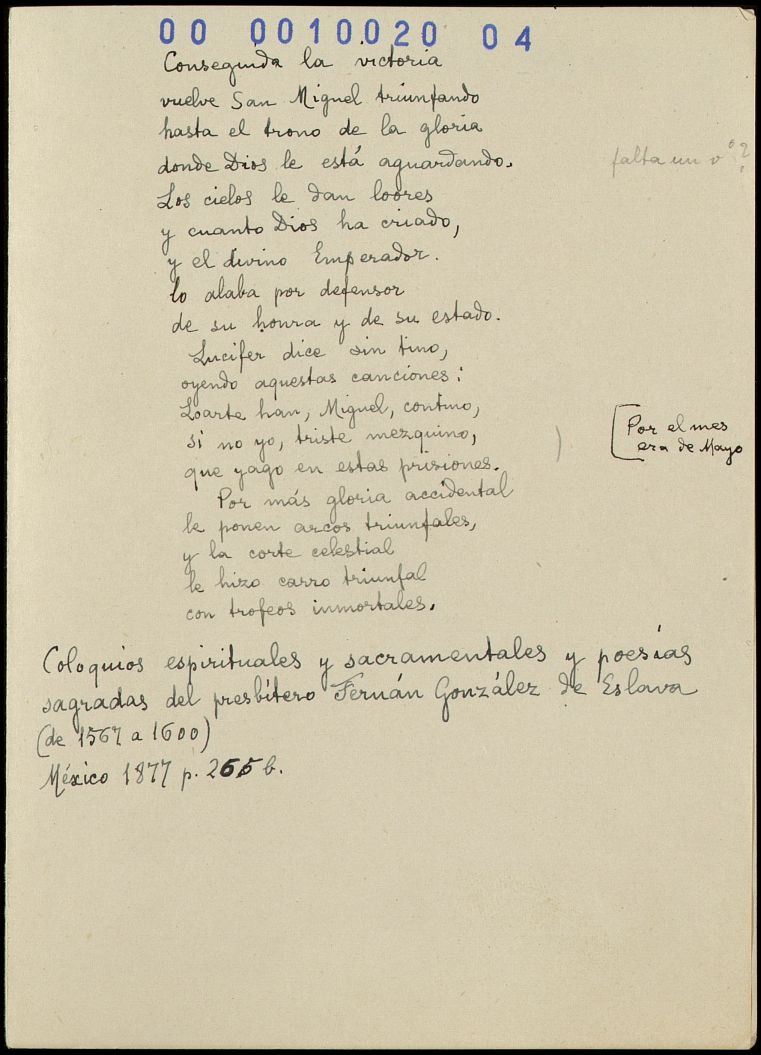 00 0010020 04
Conseguida la victoria
vuelve San Miguel triunfando
hasta el trono de la gloria
donde Dios le está aguardando.
falta un vº?
Los cielos le dan loores
y cuanto Dios ha criado,
y el divino Emperador.
lo alaba por defensor
de su honra y de su estado.
Lucifer dice sin tino,
oyendo aquestas canciones:
Loarte han, Miguel, contino,
si no yo, triste mezquino,
que yago en estas prisiones.
)
[Por el mes
era de Mayo
Por más gloria accidental
le ponen arcos triunfales,
y la corte celestial
le hizo carro triunfal
con trofeos inmortales.
Coloquios espirituales y sacramentales y poesías
sagradas del presbítero Fernán González de Eslava
(de 1567 a 1600)
México 1877 p. 265 b.